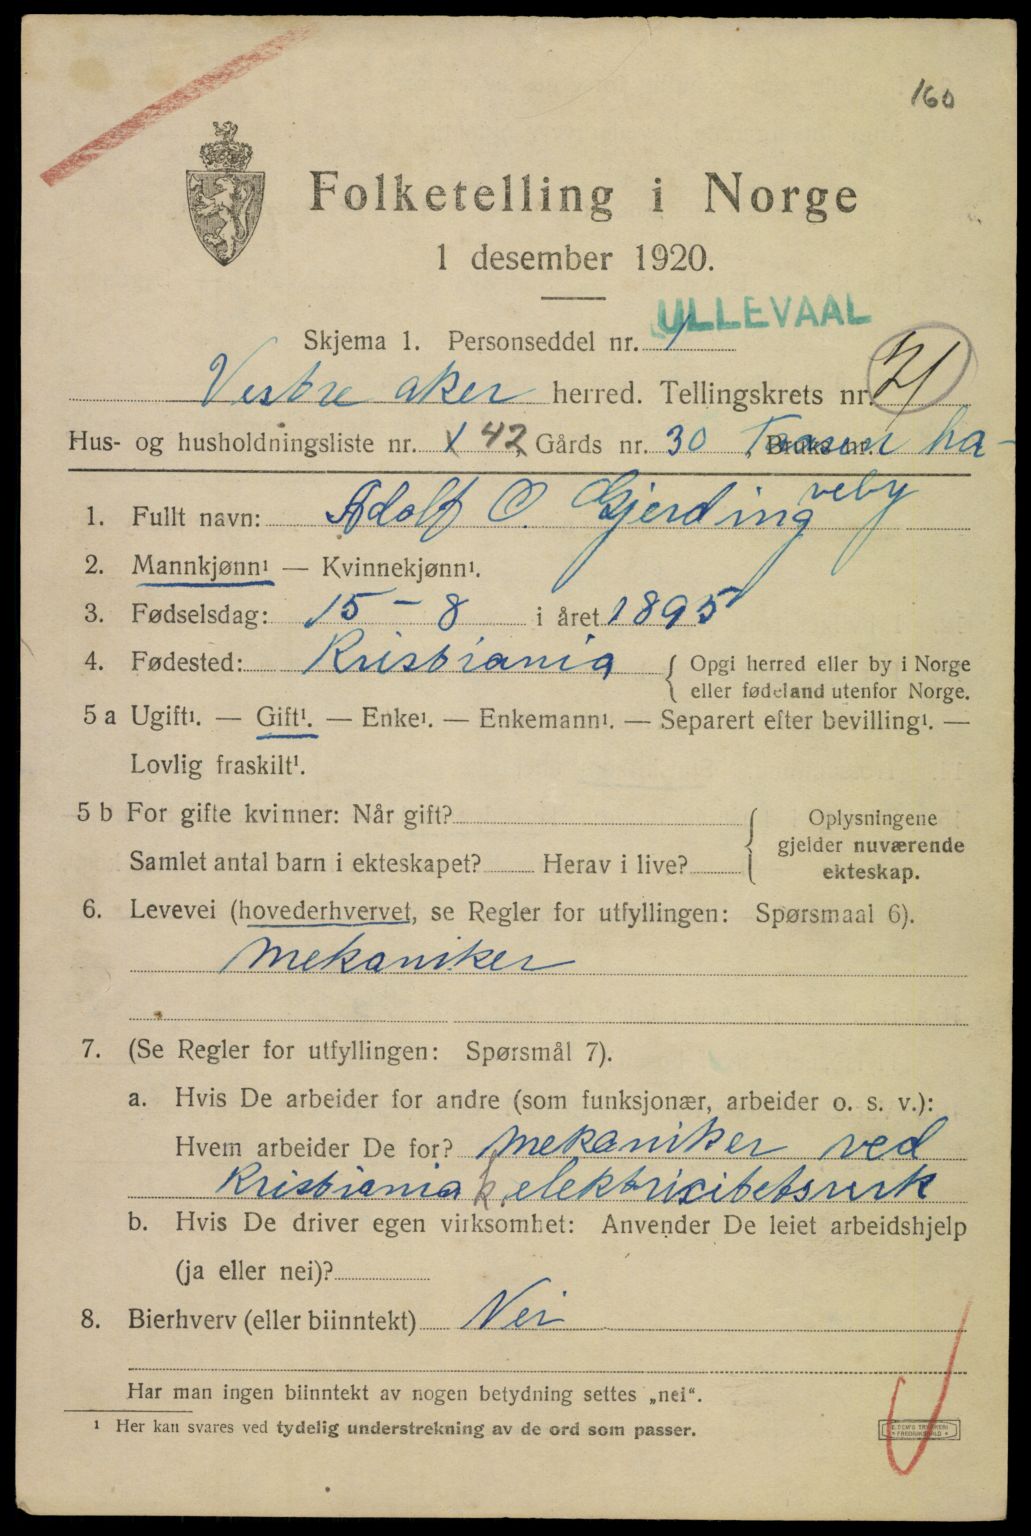 160
Folketelling i Norge
1 desember 1920.
ULLEVAAL
Skjema 1. Personseddel nr. 1
Vestre aker herred. Tellingskrets nr. 21
Hus- og husholdningsliste nr. 1 42, Gårds nr. 30 Bruks nr. Taasen ha-
veby
1. Fullt navn: Adolf O. Gjerding
2. Mannkjønn¹ — Kvinnekjønn¹.
3. Fødselsdag: 15 - 8 i året 1895
4. Fødested: Kristiania { Opgi herred eller by i Norge
eller fødeland utenfor Norge.
5 a Ugift¹. — Gift¹. — Enke¹. — Enkemann¹. — Separert efter bevilling¹. —
Lovlig fraskilt¹.
5 b For gifte kvinner: Når gift? { Oplysningene
gjelder nuværende
ekteskap.
Samlet antal barn i ekteskapet? Herav i live?
6. Levevei (hovederhvervet, se Regler for utfyllingen: Spørsmaal 6).
Mekaniker
7. (Se Regler for utfyllingen: Spørsmål 7).
a. Hvis De arbeider for andre (som funksjonær, arbeider o. s. v.):
Hvem arbeider De for? Mekaniker ved
Kristiania k. elektricitetsverk
b. Hvis De driver egen virksomhet: Anvender De leiet arbeidshjelp
(ja eller nei)?
8. Bierhverv (eller biinntekt) Nei
Har man ingen biinntekt av nogen betydning settes „nei".
¹ Her kan svares ved tydelig understrekning av de ord som passer.